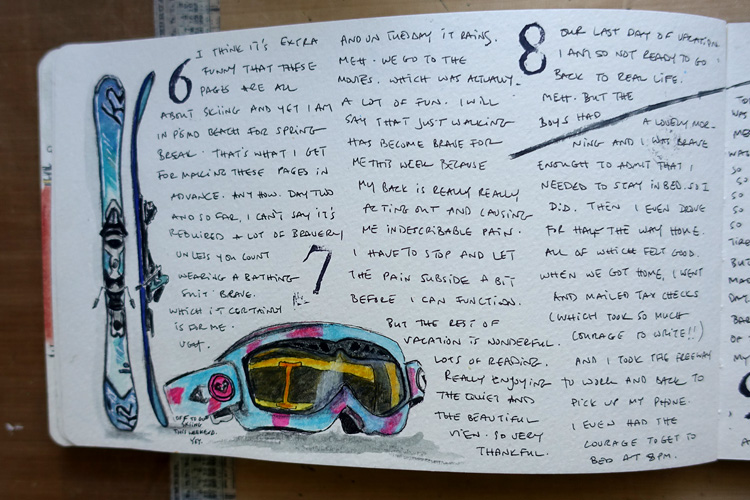 6
I THINK IT'S EXTRA
FUNNY THAT THESE
PAGES ARE ALL
ABOUT SKIING AND YET I AM
IN PISMO BEACH FOR SPRING
BREAK. THAT'S WHAT I GET
FOR MAKING THESE PAGES IN
ADVANCE. ANYHOW. DAY TWO
AND SO FAR, I CAN'T SAY IT'S
REQUIRED A LOT OF BRAVERY
UNLESS YOU COUNT
WEARING A BATHING
SUIT BRAVE.
WHICH IT CERTAINLY
IS FOR ME.
UGH.
OFF TO GO
SKIING
THIS WEEKEND.
YAY.
7
AND ON TUESDAY IT RAINS.
MEH. WE GO TO THE
MOVIES. WHICH WAS ACTUALLY
A LOT OF FUN. I WILL
SAY THAT JUST WALKING
HAS BECOME BRAVE FOR
ME THIS WEEK BECAUSE
MY BACK IS REALLY REALLY
ACTING OUT AND CAUSING
ME INDESCRIBABLE PAIN.
I HAVE TO STOP AND LET
THE PAIN SUBSIDE A BIT
BEFORE I CAN FUNCTION.
BUT THE REST OF
VACATION IS WONDERFUL.
LOTS OF READING.
REALLY ENJOYING
THE QUIET AND
THE BEAUTIFUL
VIEW. SO VERY
THANKFUL.
8
OUR LAST DAY OF VACATION.
I AM SO NOT READY TO GO
BACK TO REAL LIFE.
MEH. BUT THE
BOYS HAD A LOVELY MOR-
NING AND I WAS BRAVE
ENOUGH TO ADMIT THAT I
NEEDED TO STAY IN BED. SO I
DID. THEN I EVEN DROVE
FOR HALF THE WAY HOME.
ALL OF WHICH FELT GOOD.
WHEN WE GOT HOME, I WENT
AND MAILED TAX CHECKS
(WHICH TOOK SO MUCH
COURAGE TO WRITE!!)
AND I TOOK THE FREEWAY
TO WORK AND BACK TO
PICK UP MY PHONE.
I EVEN HAD THE
COURAGE TO GET TO
BED AT 8PM.
K2
K2